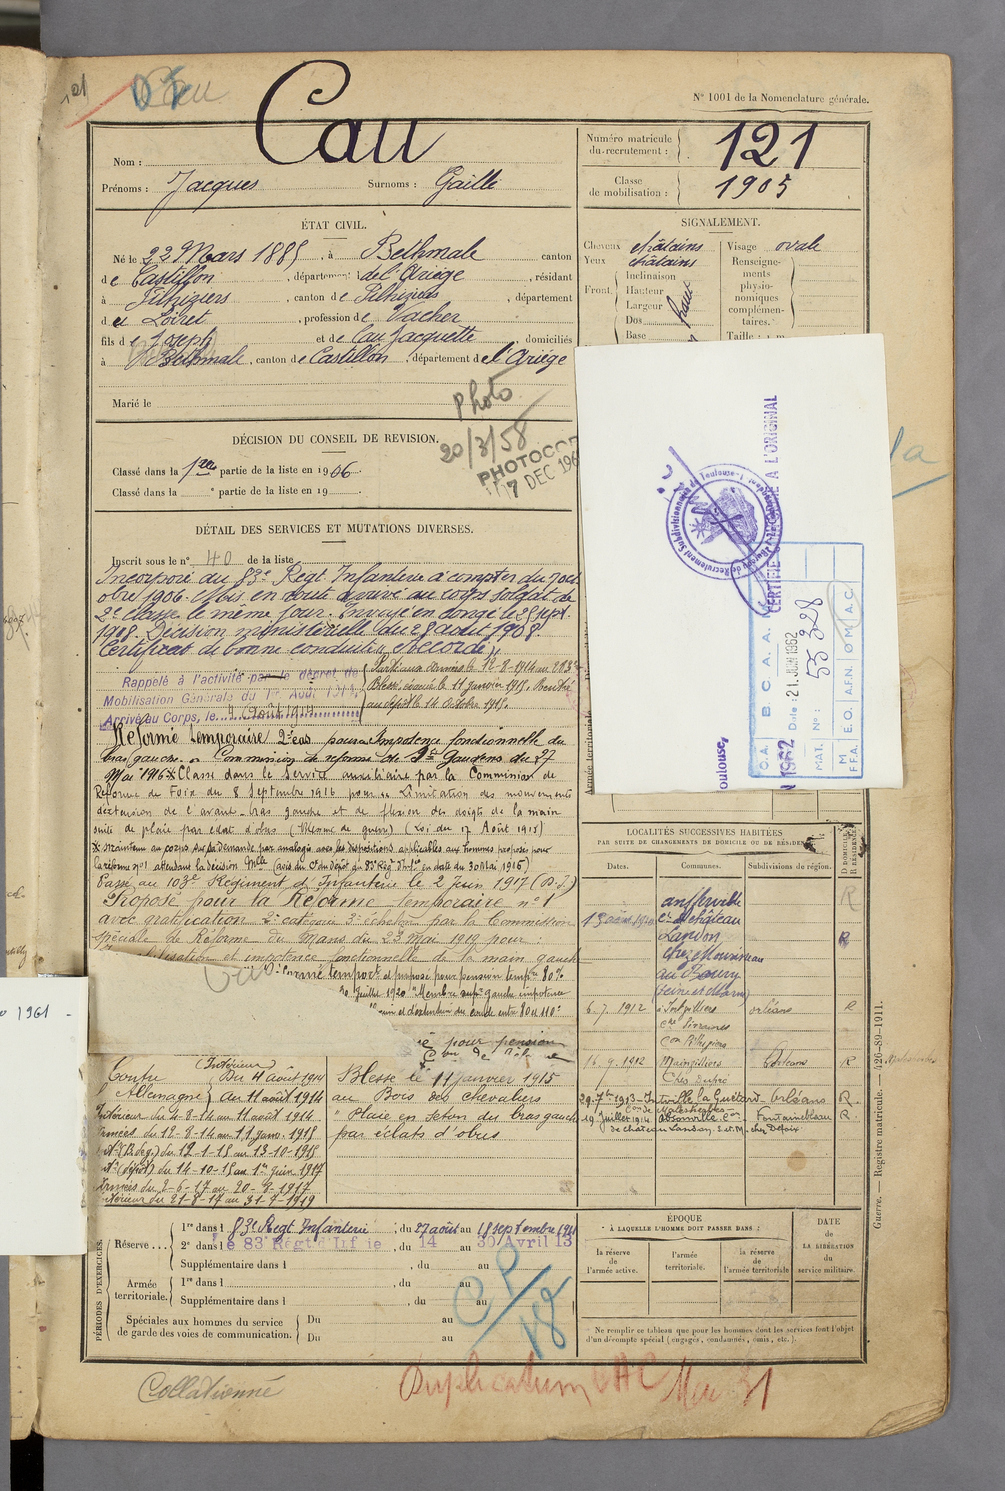 Cau
N° 1001 de la Nomenclature générale.
Nom :
Cau
Prénoms : Jacques Surnoms : Gaillé
Numéro matricule du recrutement : 121
Classe de mobilisation : 1905
ÉTAT CIVIL.
Né le 22 Mars 1885, à Bethmale canton
de Castillon, département de l'Ariège, résidant
à Pithiviers, canton de Pithiviers, département
d u Loiret, profession de Vacher
fils de Joseph et de Cau Jacquette domiciliés
à Bethmale, canton de Castillon, département de l'Ariège
Marié le
SIGNALEMENT.
Cheveux châtains Visage ovale
Yeux châtains
Front. Inclinaison
Hauteur
Largeur
Nez Dos
Base
Renseignements physionomiques complémentaires.
Taille : 1 m.
Photo
20/3/58
PHOTOCOP
7 DEC 196
DÉCISION DU CONSEIL DE REVISION.
Classé dans la 1re partie de la liste en 1906.
Classé dans la partie de la liste en 19
DÉTAIL DES SERVICES ET MUTATIONS DIVERSES.
Inscrit sous le n° 40 de la liste
Incorporé au 83e Régt Infanterie à compter du 7 oct
obre 1906. Mis en route arrivé au corps soldat de
2e classe le même jour. Envoyé en congé le 25 sept.
1908. Décision ministérielle du 28 août 1908.
Certificat de bonne conduite « Accordé »
Rappelé à l'activité par le décret de
Mobilisation Générale du 1er Août 1914
Arrivé au Corps, le 4 Août 1914
Parti aux armées le 12-8-1914 au 283e
Blessé, évacué le 11 janvier 1915. Rentré
au dépôt le 14 octobre 1915.
Réformé temporaire 2e cas pour « Impotence fonctionnelle du
bras gauche. » Commission de réforme de St Gaudens du 27
Mai 1916 X Classé dans le Service auxiliaire par la Commission de
Réforme de Foix du 8 Septembre 1916 pour « Limitation des mouvements
d'extension de l'avant-bras gauche et de flexion des doigts de la main
suite de plaie par éclat d'obus (Blessure de guerre) (Loi du 17 Août 1915)
X maintenu au corps sur sa demande par analogie avec les dispositions applicables aux hommes proposés pour
la réforme n°1 attendant la décision Mlle (avis du Ct du Dépôt du 83e Régt d'Inf. en date du 30 Mai 1916)
Passé au 103e Régiment d'Infanterie le 2 juin 1917
Proposé pour la Réforme temporaire n° 1
avec gratification 2e catégorie 3e échelon par la Commission
spéciale de Réforme du Mans du 23 Mai 1919 pour :
et impotence fonctionnelle de la main gauche
Réformé tempor. et proposé pour pension tempre 80%
Juillet 1920 "Membre supr gauche impotence
main et d'extension du coude entre 80 et 110°
pour pension
Con de Réforme
Contre Allemagne Intérieur Du 4 août 1914
au 11 août 1914
Intérieur du 4-8-14 au 11 août 1914
Armées du 12-8-14 au 11 janv. 1915
du 12-1-15 au 13-10-1915
Int. (dépôt) du 14-10-15 au 1er Juin 1917
Armées du 2-6-17 au 20-8-1917
Intérieur du 21-8-17 au 31-7-1919
Blessé le 11 janvier 1915
au Bois des Chevaliers
"Plaie en séton du bras gauche
par éclats d'obus"
PÉRIODES D'EXERCICES.
Réserve ... 1re dans l 83e Régt Infanterie, du 27 août au 18 septembre 1911
2e dans l e 83 Régt d'Infie, du 14 au 30 Avril 13
Supplémentaire dans l , du au
Armée territoriale. 1re dans l , du au
Supplémentaire dans l , du au
Spéciales aux hommes du service de garde des voies de communication. Du au
Du au
CP/18
Bureau de Recrutement Subdivisionnaire de Toulouse
CERTIFIÉ CONFORME A L'ORIGINAL
oulouse,
1962
O.A. B.C.A.A.M
Date : 21 JUIN 1962
MAT. N° : 55 328
M F.F.A. E.O. A.F.N. O M A.C.
Armée territoriale
LOCALITÉS SUCCESSIVES HABITÉES
PAR SUITE DE CHANGEMENTS DE DOMICILE OU DE RÉSIDENCE.
Dates. Communes. Subdivisions de région. D DOMICILE R RÉSIDENCE
13 août 1910 aufferville
con de château
Landon
chez Mr
(Seine et Marne)
R
R
6.7.1912 Intvilliers orléans R
16.9.1912 Mainvilliers Orléans R
Chez Dupré
29-7bre 1913 - Intville la Guétard - Orléans R.
19 juillet 1914 Fontainebleau R.
de château Landon. S. et M.
ÉPOQUE
À LAQUELLE L'HOMME DOIT PASSER DANS :
la réserve de l'armée active.
l'armée territoriale.
la réserve de l'armée territoriale
DATE DE LA LIBÉRATION du service militaire.
* Ne remplir ce tableau que pour les hommes dont les services font l'objet
d'un décompte spécial (engagés, condamnés, omis, etc.).
Guerre. — Registre matricule. — 420-89-1911.
1961
Collationné
Duplicatum Mai 31